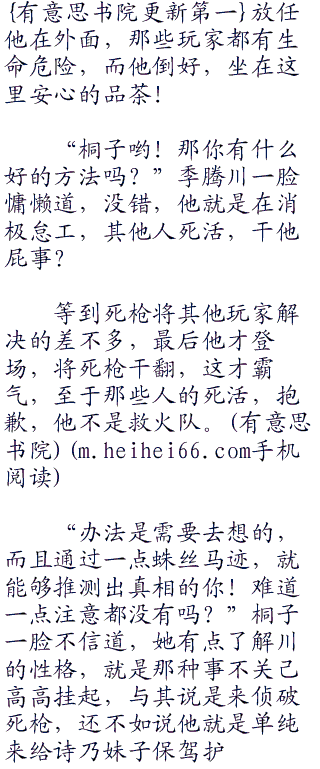 {有意思书院更新第一}放任
他在外面，那些玩家都有生
命危险，而他倒好，坐在这
里安心的品茶！
“桐子哟！那你有什么
好的方法吗？”季腾川一脸
慵懒道，没错，他就是在消
极怠工，其他人死活，干他
屁事？
等到死枪将其他玩家解
决的差不多，最后他才登
场，将死枪干翻，这才霸
气，至于那些人的死活，抱
歉，他不是救火队。(有意思
书院)(m.heihei66.com手机
阅读)
“办法是需要去想的，
而且通过一点蛛丝马迹，就
能够推测出真相的你！难道
一点注意都没有吗？”桐子
一脸不信道，她有点了解川
的性格，就是那种事不关己
高高挂起，与其说是来侦破
死枪，还不如说他就是单纯
来给诗乃妹子保驾护